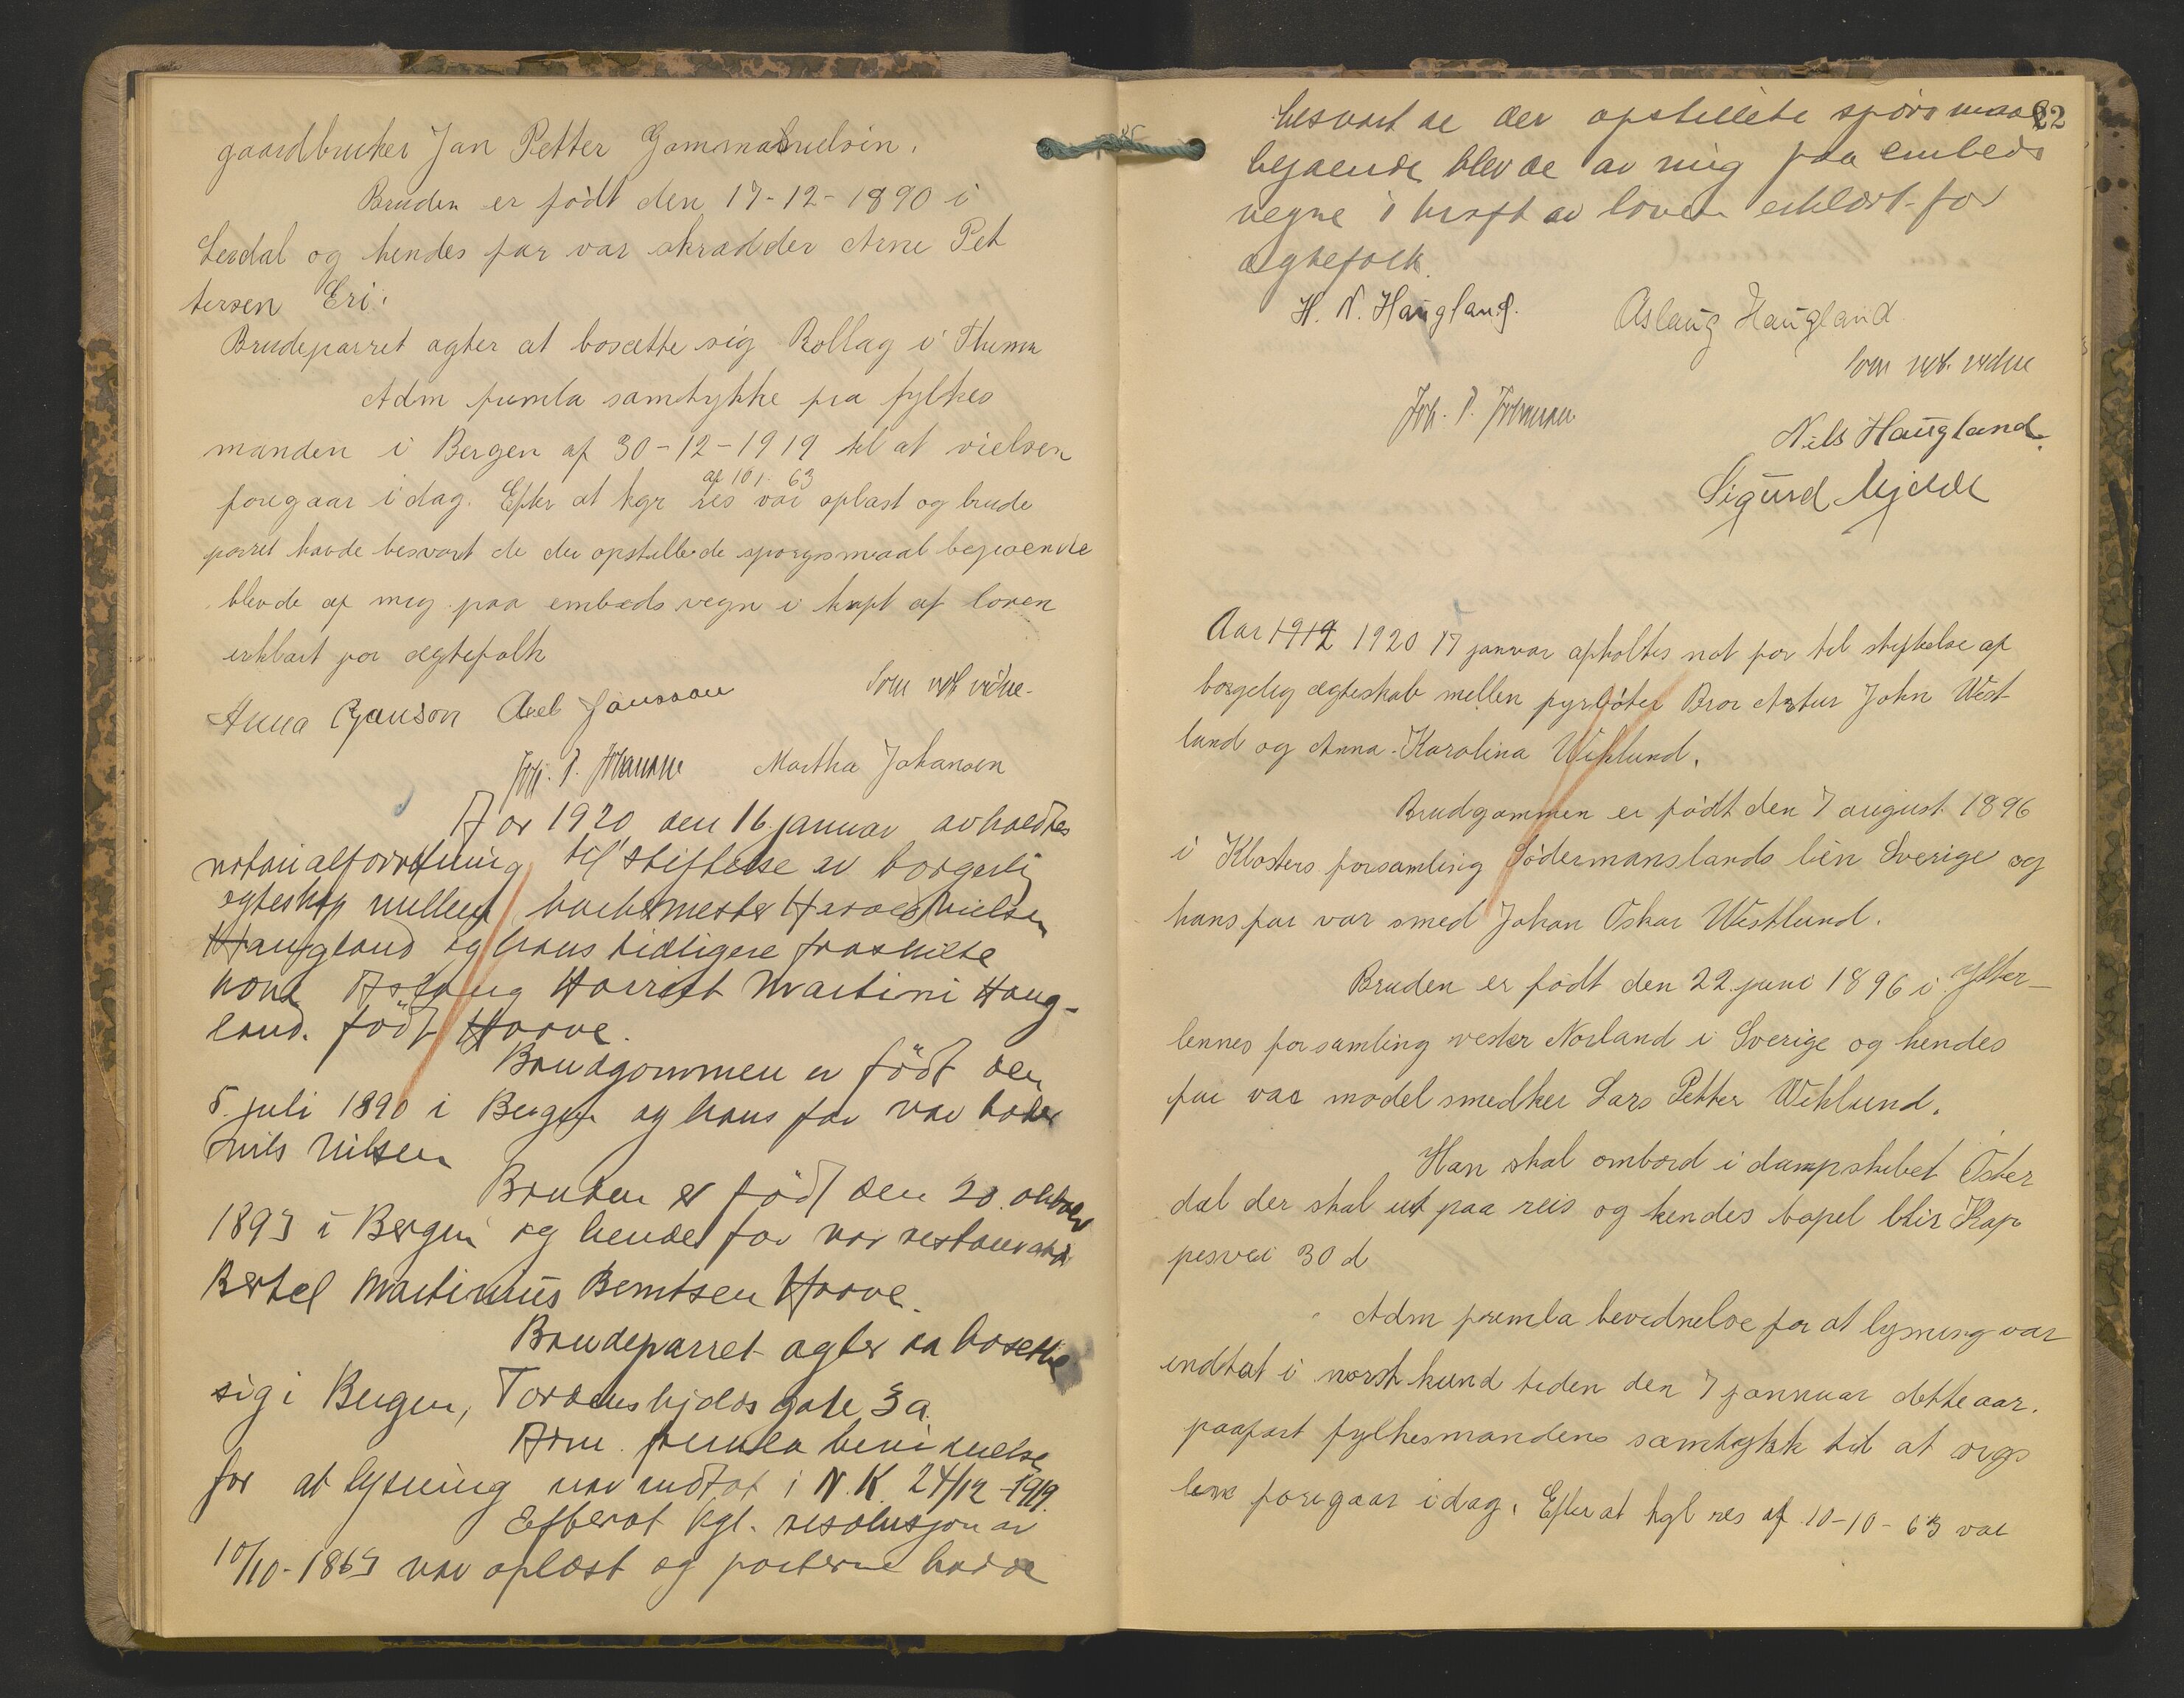 gaardbruker Jan Petter Gammalnielsin.
Bruden er født den 17-12-1890 i
Lerdal og hendes far var skrædder Arne Pet
tersen Eri.
Brudeparret agter at bosætte sig Rollag i Numm
Adm fremla samtykke fra fylkes
manden i Bergen af 30-12-1919 til at vielsen
foregaar i dag. Efter at kgr res af 10 1. 63 var oplæst og brude
parret havde besvart de der opstillede spørgsmaal bejaaende
blev de af meg paa embeds vegn i kraft af loven
erklært for ægtefolk
Som not vidne.
Anna Janson Axel Jansson
Joh. P. Johansen Martha Johansen
Aar 1920 den 16. januar avholdtes
notarialforretning til stiftelse av borgerlig
egteskap mellem bakermester Harald Nielsen
Haugland og hans tidligere fraskilte
kone Aslaug Harriet Martini Haug-
land. født Haave.
Brudgommen er født den
5. juli 1890 i Bergen og hans far var baker
Nils Nilsen
Bruden er født den 20. oktober
1893 i Bergen og hendes far var restauratør
Bertel Martinius Berntsen Haave.
Brudeparret agter aa bosette
sig i Bergen, Tordenskjolds gate 3a.
Adm. fremla bevidnelse
for at lysning var indtat i N.K. 24/12-1919.
Efterat kgl. resolusjon av
10/10-1863 var oplæst og parterne hadde
22
besvart de der opstillete spørsmaal
bejaende blev de av mig paa embeds
vegne i kraft av loven erklært for
egtefolk.
H. N. Haugland. Aslaug Haugland.
Som not. vidne
Joh. P. Johansen
Nils Haugland.
Sigurd Mjelde
Aar 1919 1920 17 januar afholtes not for til stiftelse af
borgelig ægteskab mellen fyrbøter Bror Artur John West
lund og Anna Karolina Wiklund.
Brudgommen er født den 7 august 1896
i Klosters forsamling Södermanslands lên Sverige og
hans far var smed Johan Oskar Westlund.
Bruden er født den 22. juni 1896 i Ytter-
lennes forsamling vester Norland i Sverige og hendes
far var model smedker Lars Petter Wiklund.
Han skal ombord i dampskibet Öster
dal der skal ut paa reis og hendes bopel blir Kap
pesvei 30 d
Adm fremla bevidnelse for at lysning var
indtat i norsk kund tiden den 7 jannuar dette aar.
paafart fylkesmandens samtykk til at
foregaar i dag. Efter at kgl res af 10-10-63 var